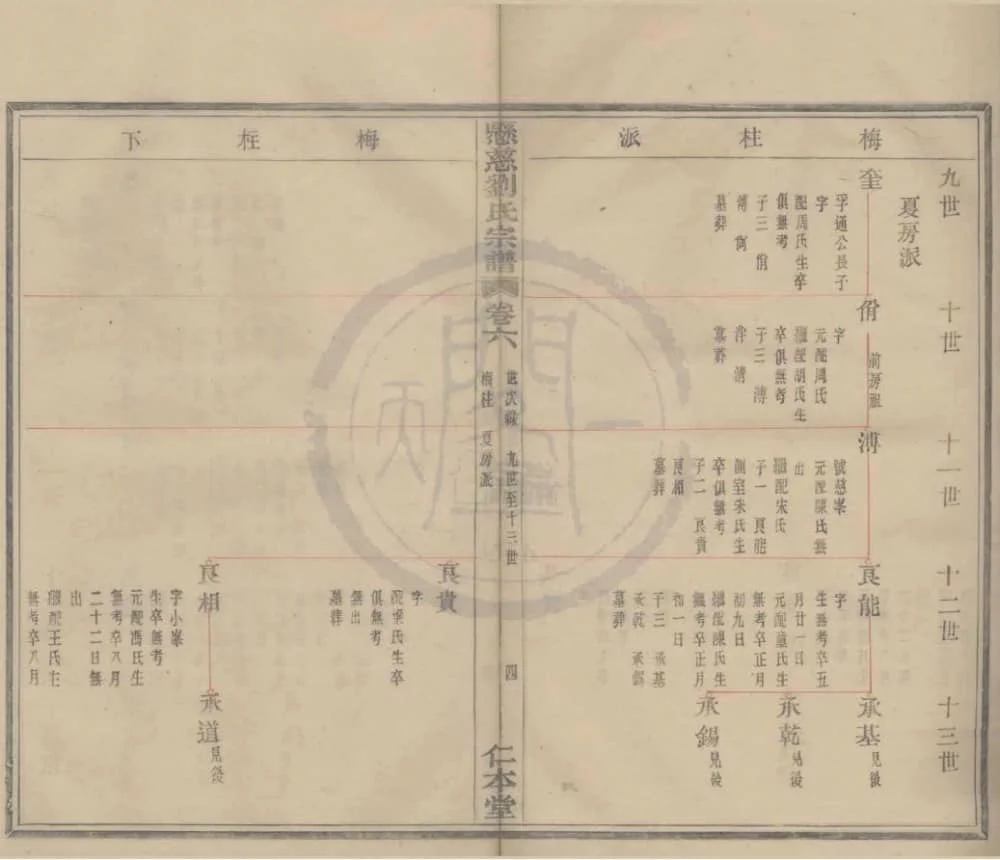 梅桂派
九世
夏房派
十世
十一世
十二世
十三世
奎
孚通公長子
字
配周氏生卒
俱無考
子三 佾
溥 裔
墓葬
佾
前房祖
字
元配周氏
繼配胡氏生
卒俱無考
子三 溥
洋 濟
墓葬
溥
號慈峯
元配陳氏無
出
繼配宋氏
子一 良能
側室朱氏生
卒俱無考
子二 良貴
良相
墓葬
良能
字
生無考卒五
月廿一日
元配盧氏生
無考卒正月
初九日
繼配陳氏生
無考卒正月
初一日
子三 承基
承乾 承錫
墓葬
承基見後
承乾見後
承錫見後
懸慈劉氏宗譜
卷六
世次錄 九世至十三世
梅桂 夏房派
四
仁本堂
梅桂下
良貴
字
配 氏生卒
俱無考
無出
墓葬
良相
字小峯
生卒無考
元配馮氏生
無考卒八月
二十二日無
出
繼配王氏生
無考卒八月
承道見後